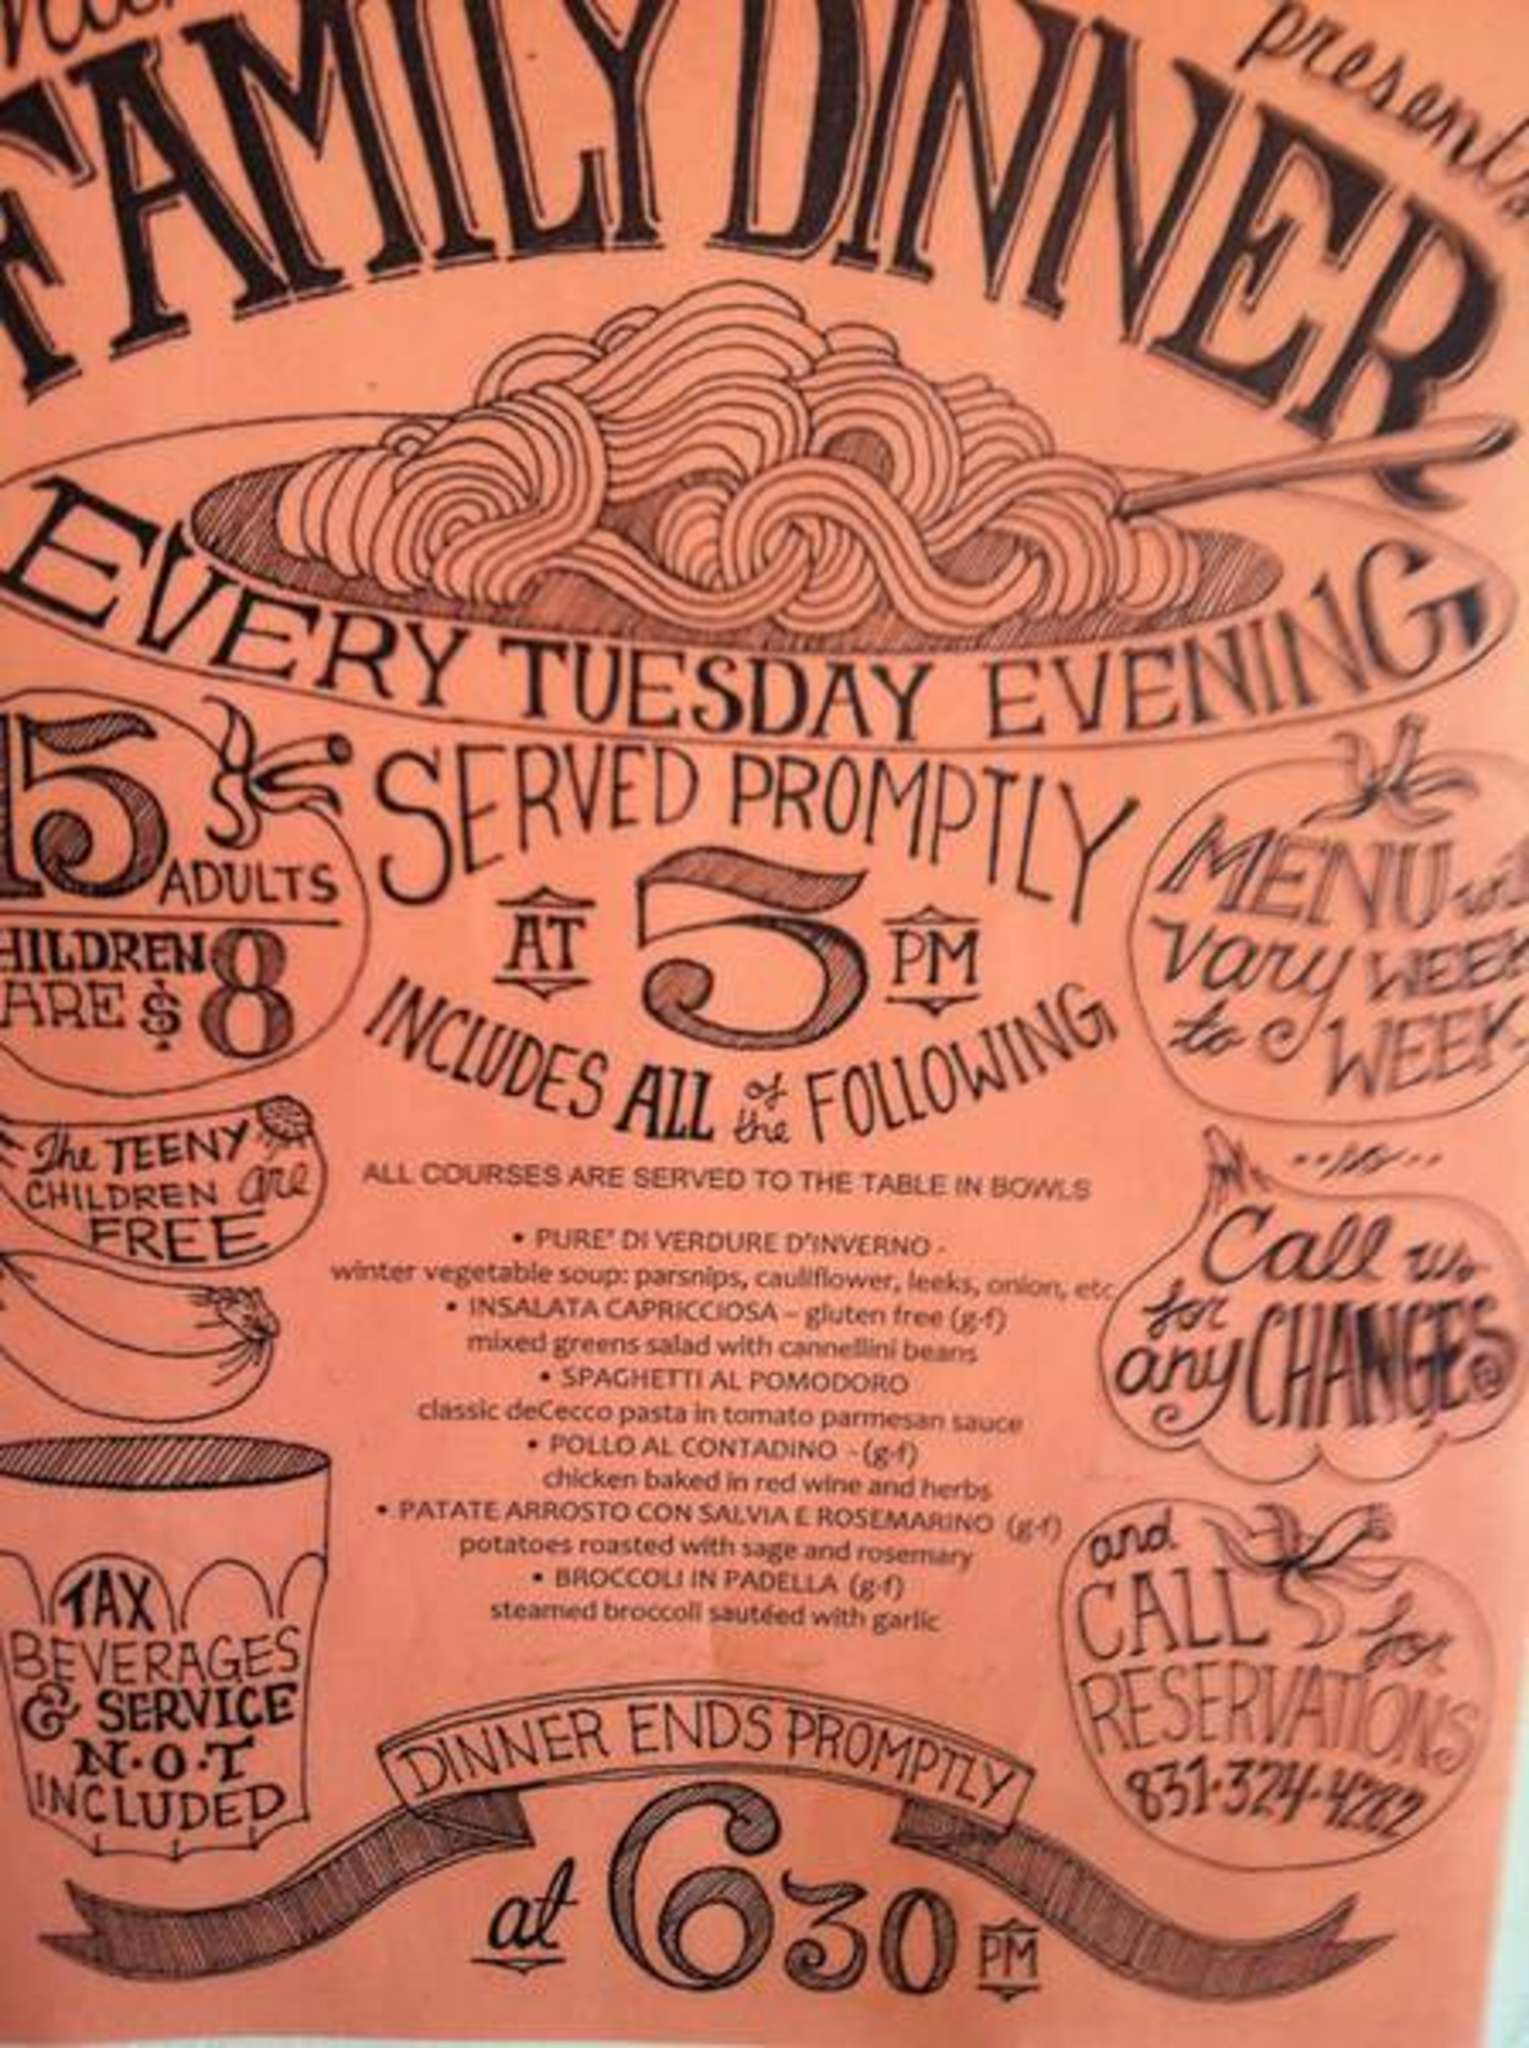 presents
FAMILY DINNER
EVERY TUESDAY EVENING
15 ADULTS
HILDREN
ARE $ 8
The TEENY
CHILDREN are
FREE
TAX
BEVERAGES
& SERVICE
N·O·T
INCLUDED
SERVED PROMPTLY
AT 5 PM
INCLUDES ALL of the FOLLOWING
ALL COURSES ARE SERVED TO THE TABLE IN BOWLS
• PURE' DI VERDURE D'INVERNO -
winter vegetable soup: parsnips, cauliflower, leeks, onion, etc
• INSALATA CAPRICCIOSA – gluten free (g-f)
mixed greens salad with cannellini beans
• SPAGHETTI AL POMODORO
classic deCecco pasta in tomato parmesan sauce
• POLLO AL CONTADINO - (g-f)
chicken baked in red wine and herbs
• PATATE ARROSTO CON SALVIA E ROSEMARINO (g-f)
potatoes roasted with sage and rosemary
• BROCCOLI IN PADELLA (g-f)
steamed broccoli sautéed with garlic
MENU will
vary WEEK
to WEEK.
Call us
for
any CHANGES
and
CALL for
RESERVATIONS
831·324·4282
DINNER ENDS PROMPTLY
at 630 PM